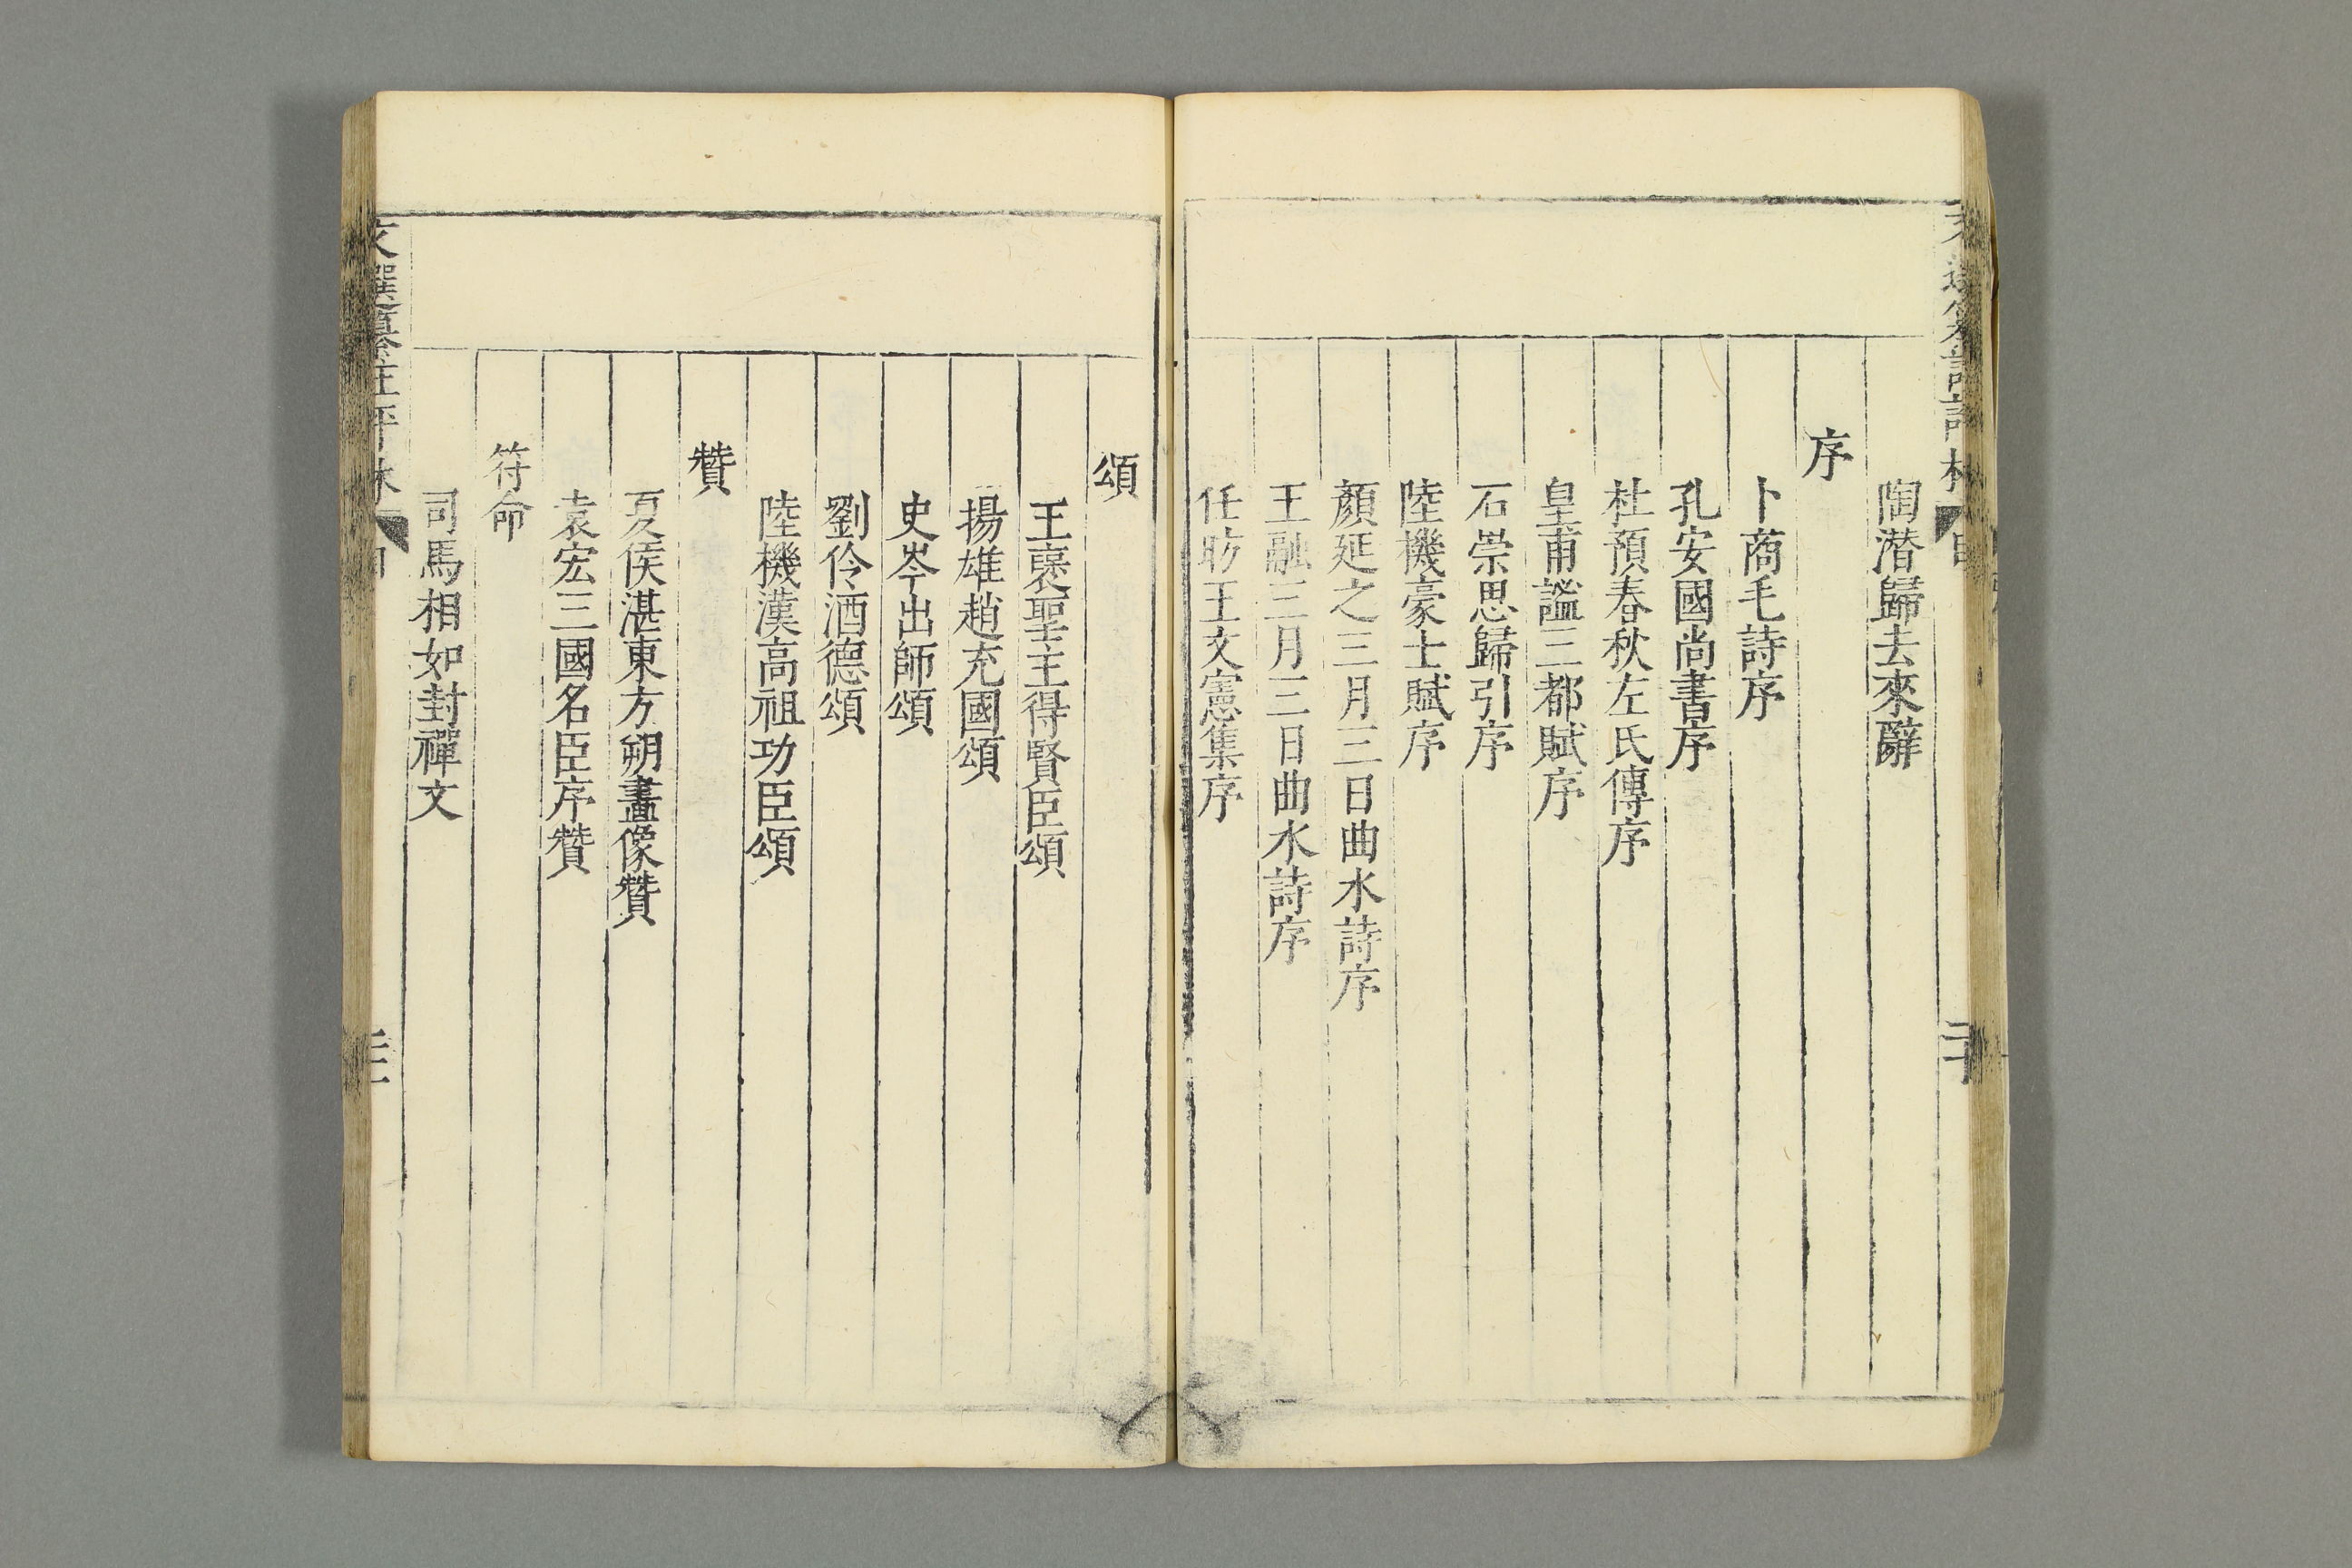 陶潛歸去來辭
序
卜商毛詩序
孔安國尚書序
杜預春秋左氏傳序
皇甫謐三都賦序
石崇思歸引序
陸機豪士賦序
顏延之三月三日曲水詩序
王融三月三日曲水詩序
任昉王文憲集序
頌
王褒聖主得賢臣頌
揚雄趙充國頌
史岑出師頌
劉伶酒德頌
陸機漢高祖功臣頌
贊
夏侯湛東方朔畫像贊
袁宏三國名臣序贊
符命
司馬相如封禪文
文選纂註評林